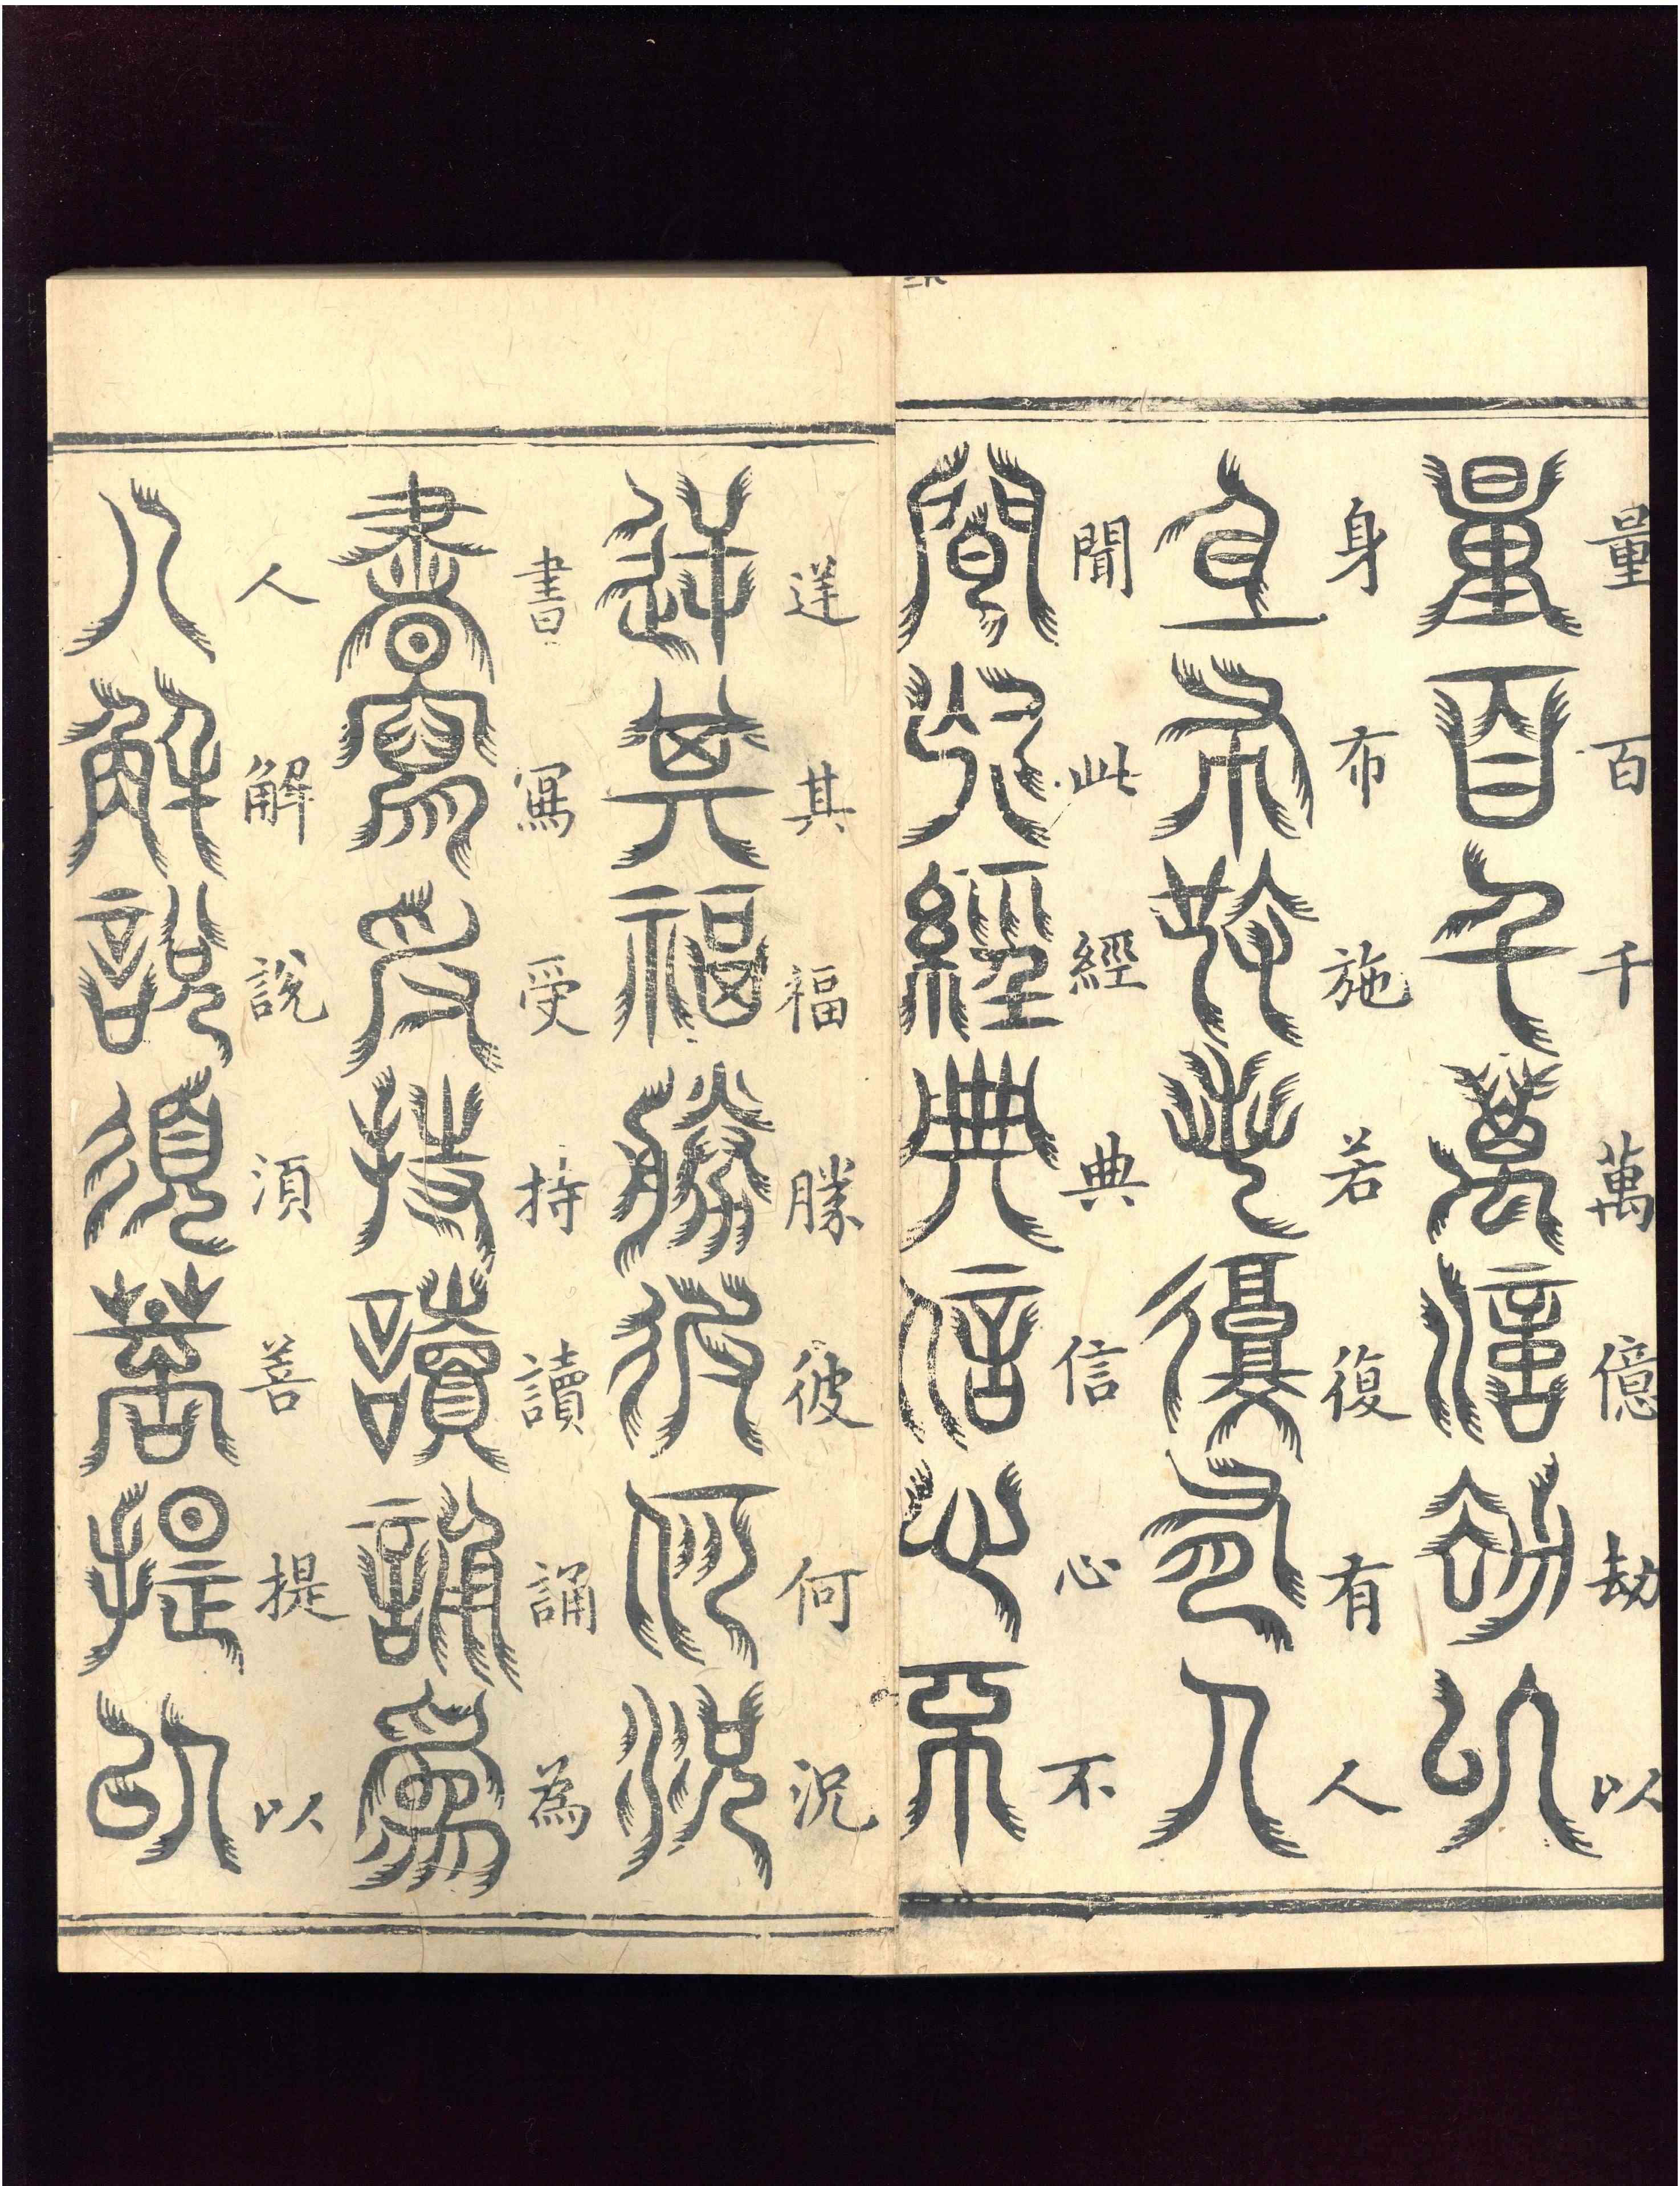 量百千萬億劫以
身布施若復有人
聞此經典信心不
逆其福勝彼何況
書寫受持讀誦為
人解說須菩提以